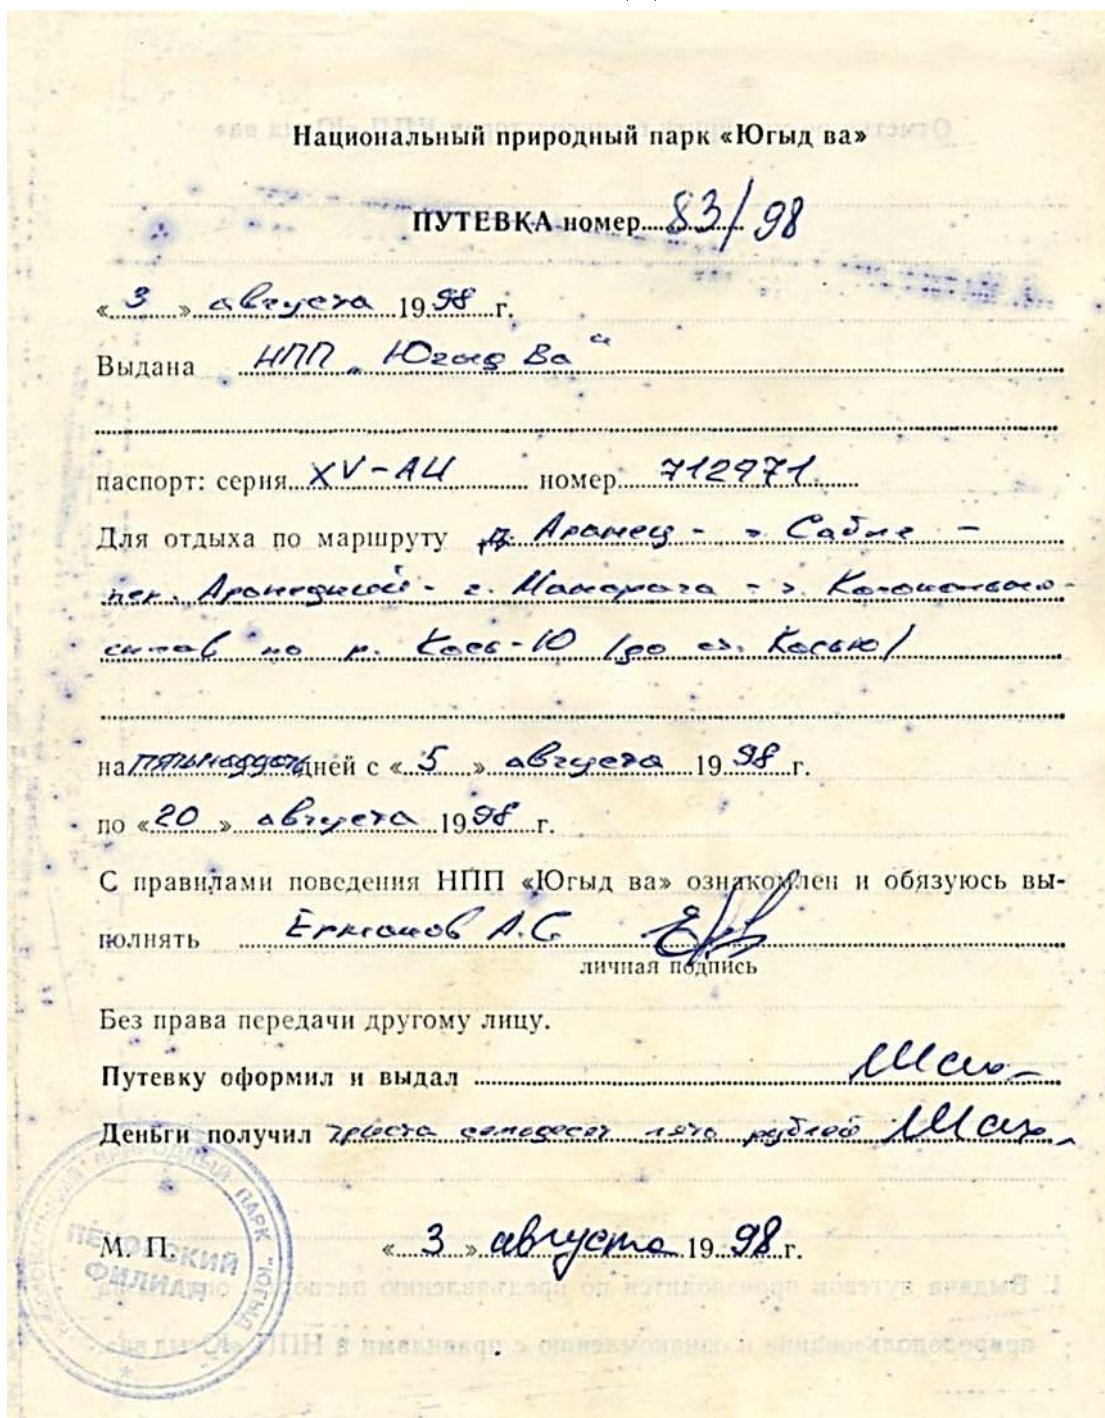 Национальный природный парк «Югыд ва»
ПУТЕВКА номер 83/98
«3» августа 1998 г.
Выдана НПП „Югыд Ва“
паспорт: серия XV-АЦ номер 712971
Для отдыха по маршруту д. Аранец - г. Сабля -
пер. Аранецкий - г. Манарага - г. Колокольня -
сплав по р. Кось-Ю /до ст. Косью/
на пятьнадцать дней с «5» августа 1998 г.
по «20» августа 1998 г.
С правилами поведения НПП «Югыд ва» ознакомлен и обязуюсь вы-
полнять А.С.
личная подпись
Без права передачи другому лицу.
Путевку оформил и выдал
Деньги получил триста семьдесят пять рублей
М. П. «3» августа 1998 г.
ПРИРОДНЫЙ ПАРК "ЮГЫД
ПЕЧОРСКИЙ
ФИЛИАЛ